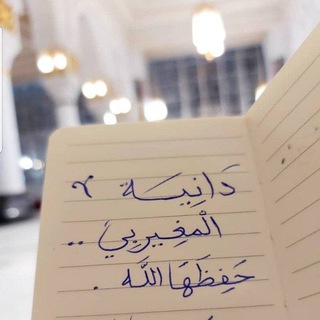 دَانِيَـة ٧
الْمغِيربِي ..
حَفِظَهَا اللَّه .